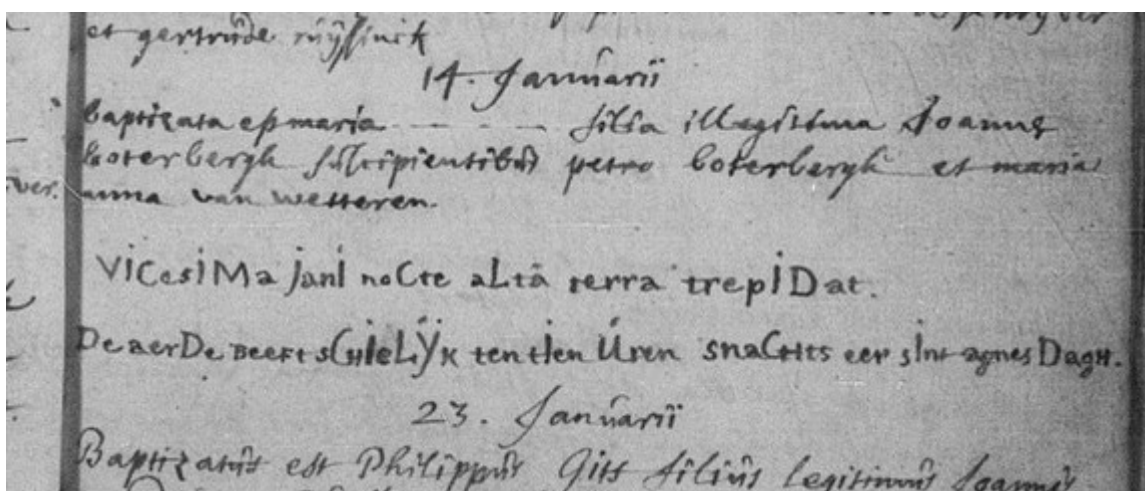 et gertrude ruÿssinck
14. Januarii
baptizata est maria - - - - filia illegittima Joannes
boterbergh suscipientibus petro boterbergh et maria
ver. anna van wetteren.
VICesIMa janI noCte aLta terra trepIDat.
De aerDe BeeFt sCHIeLŸK ten tIen Uren snaCHts eer sInt agnes DagH.
23. Januarii
Baptizatus est Philippus Gits filius legitimus Joannis